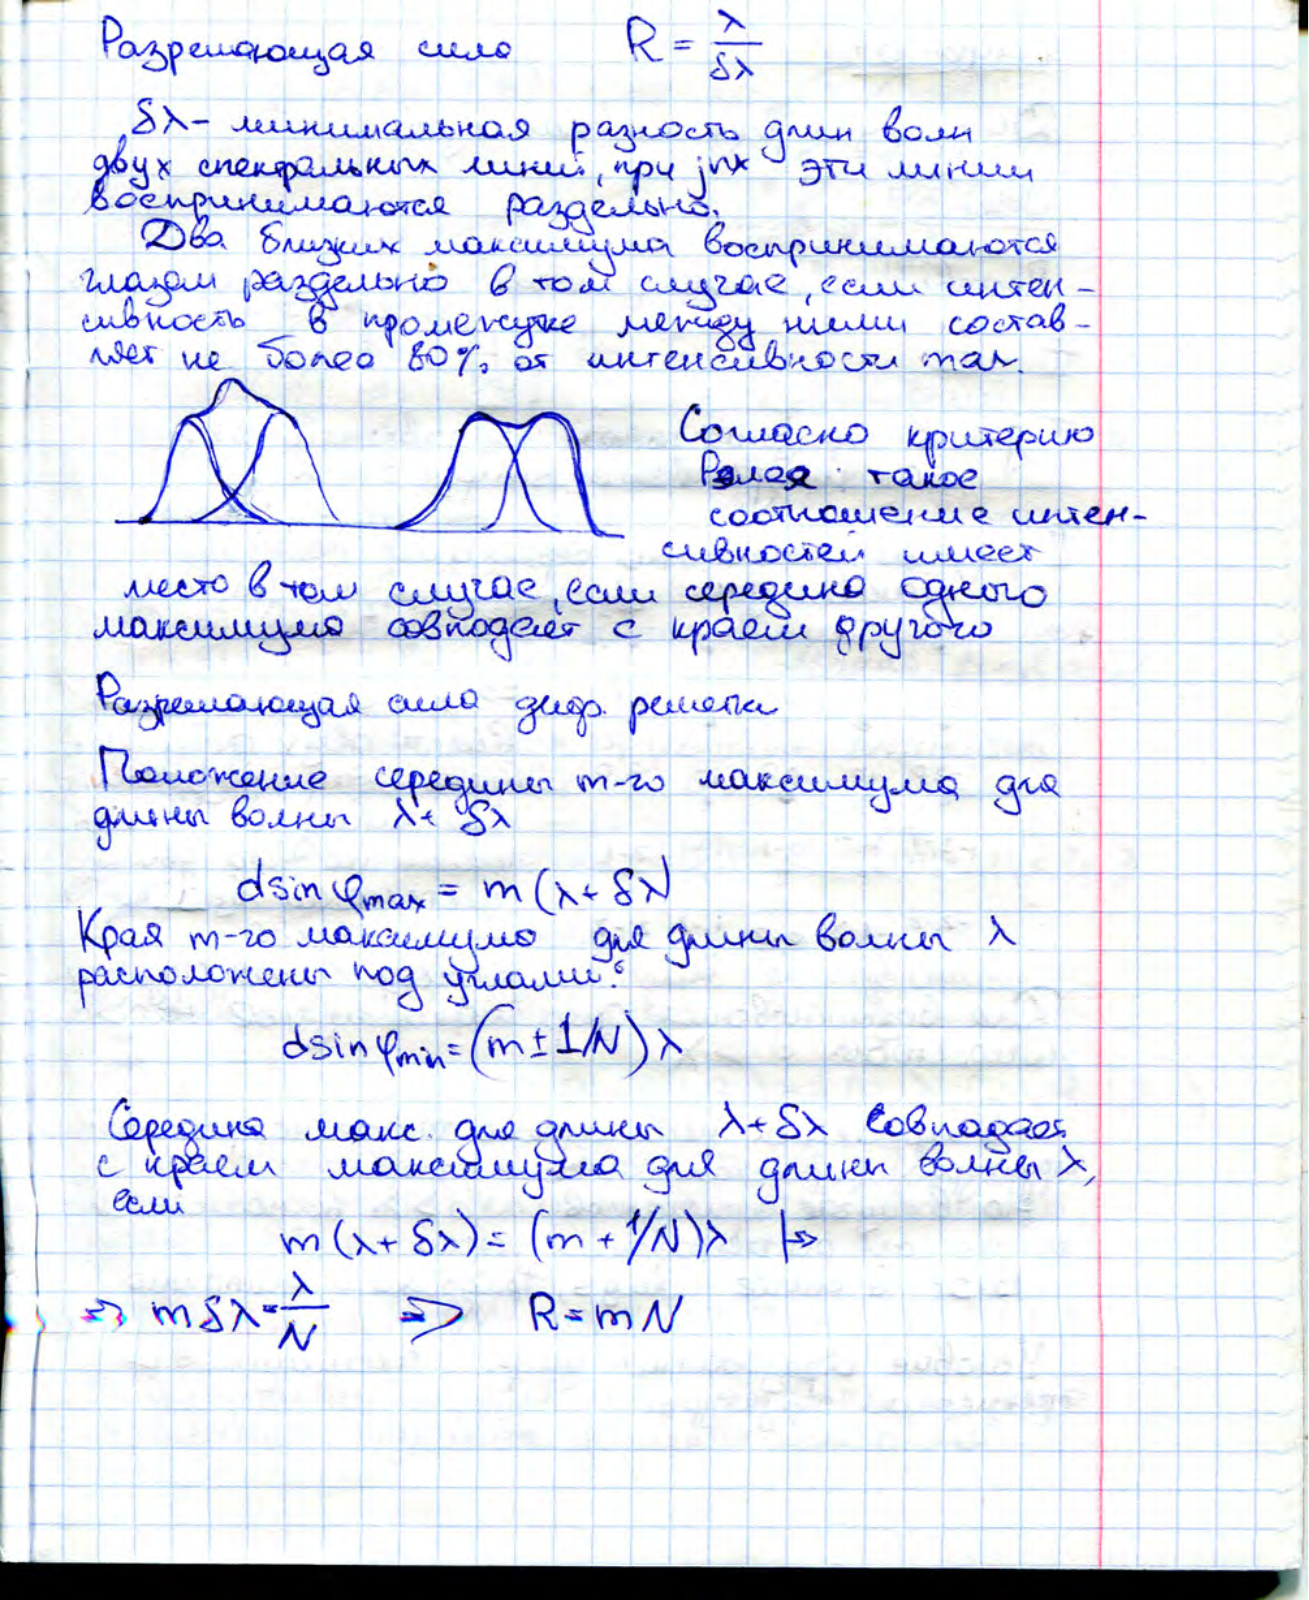 Разрешающая сила R = λ/δλ
δλ - минимальная разность длин волн
двух спектральных линий, при которых эти линии
воспринимаются раздельно.
Два близких максимума воспринимаются
глазом раздельно в том случае, если интен-
сивность в промежутке между ними состав-
ляет не более 80% от интенсивности max.
Согласно критерию
Рэлея такое
соотношение интен-
сивностей имеет
место в том случае, если середина одного
максимума совподает с краем другого
Разрешающая сила диф. решетки
Положение середины m-го максимума для
длины волны λ + δλ
dsin φmax = m (λ + δλ)
Края m-го максимума для длины волны λ
расположены под углами:
dsin φmin = (m ± 1/N) λ
Середина макс. для длины λ + δλ совпадает
с краем максимума для длины волны λ,
если
m (λ + δλ) = (m + 1/N) λ ⇒
⇒ m δλ = λ/N ⇒ R = mN